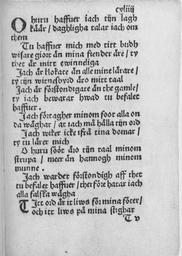 cxliiij
O huru haffuer iach tijn lagh
käär / daghligha talar iach om
them
Tu haffuer mich med titt budh
wisare giort än mina fiender äre / ty
thet är mitt ewinneliga
Iach är klokare än alle mine lärare /
ty tijn witnesbyrd äro mitt taal
Iach är förstondigare än the gamle /
ty iach bewarar hwad tu befalet
haffuer
Iach förtagher minom foot alla on
da wäghar / at iach må hålla tijn ord
Iach wiker icke ifrå tina domar /
ty tu lärer mich
O huru sööt äro tijn taal minom
strupa / meer än hannogh minom
munne
Iach warder förstondigh aff thet
tu befalet haffuer / ther före hatar iach
alla falska wägha
Titt ord är itt liws för mina föter /
och itt liws på mina stighar
T v